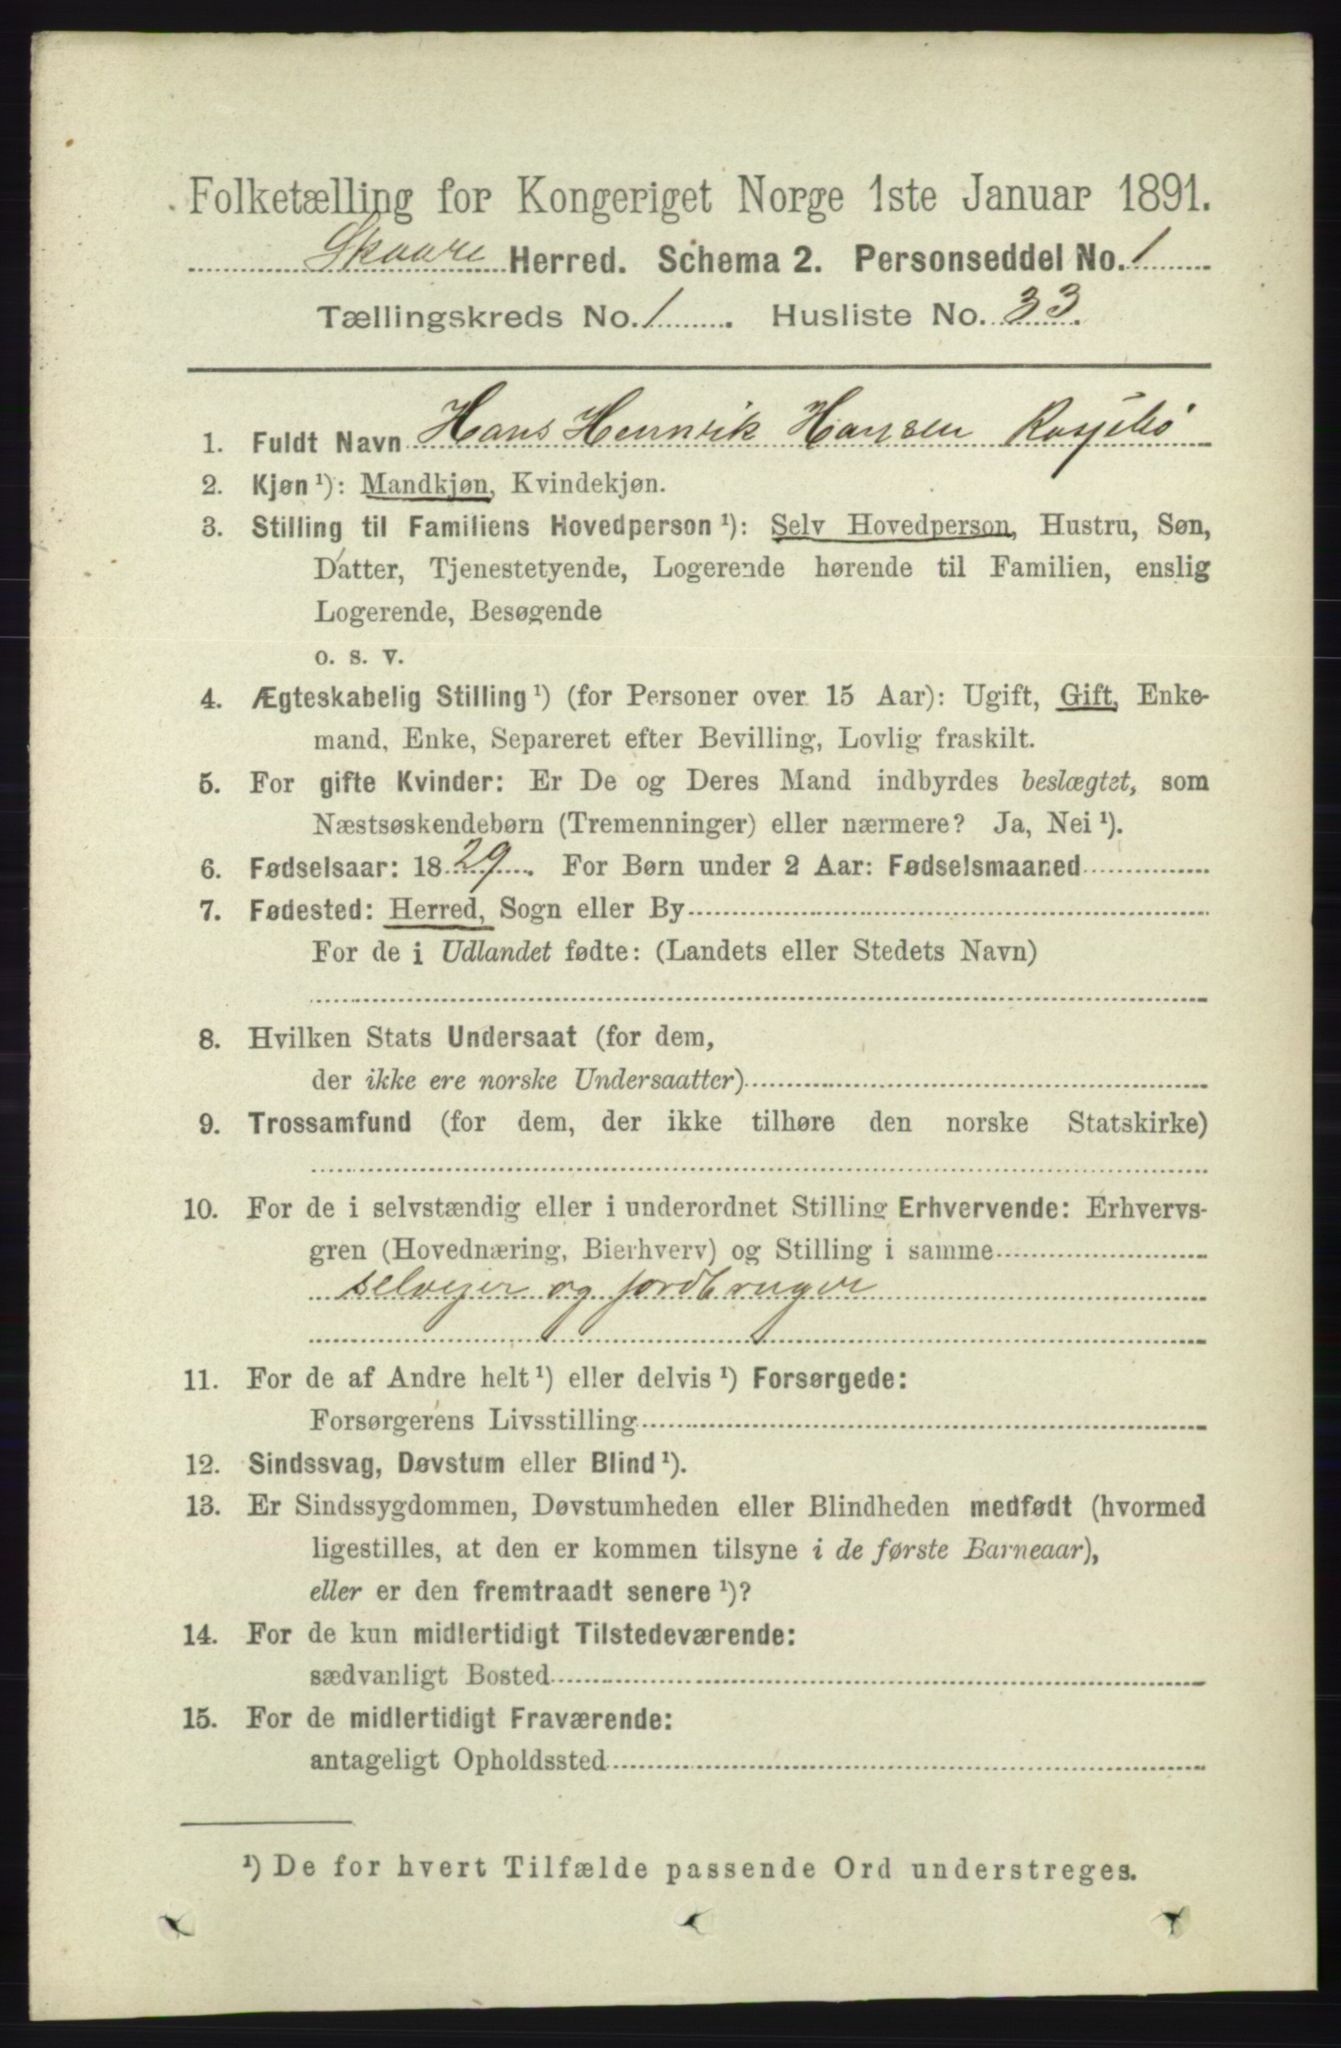 Folketælling for Kongeriget Norge 1ste Januar 1891.
Skaare Herred. Schema 2. Personseddel No. 1
Tællingskreds No. 1. Husliste No. 33.
1. Fuldt Navn Hans Henrik Hansen
2. Kjøn ¹): Mandkjøn, Kvindekjøn.
3. Stilling til Familiens Hovedperson ¹): Selv Hovedperson, Hustru, Søn,
Datter, Tjenestetyende, Logerende hørende til Familien, enslig
Logerende, Besøgende
o. s. v.
4. Ægteskabelig Stilling ¹) (for Personer over 15 Aar): Ugift, Gift, Enke-
mand, Enke, Separeret efter Bevilling, Lovlig fraskilt.
5. For gifte Kvinder: Er De og Deres Mand indbyrdes beslægtet, som
Næstsøskendebørn (Tremenninger) eller nærmere? Ja, Nei ¹).
6. Fødselsaar: 1829. For Børn under 2 Aar: Fødselsmaaned
7. Fødested: Herred, Sogn eller By
For de i Udlandet fødte: (Landets eller Stedets Navn)
8. Hvilken Stats Undersaat (for dem,
der ikke ere norske Undersaatter)
9. Trossamfund (for dem, der ikke tilhøre den norske Statskirke)
10. For de i selvstændig eller i underordnet Stilling Erhvervende: Erhvervs-
gren (Hovednæring, Bierhverv) og Stilling i samme
selvejer og jordbruger
11. For de af Andre helt ¹) eller delvis ¹) Forsørgede:
Forsørgerens Livsstilling
12. Sindssvag, Døvstum eller Blind ¹).
13. Er Sindssygdommen, Døvstumheden eller Blindheden medfødt (hvormed
ligestilles, at den er kommen tilsyne i de første Barneaar),
eller er den fremtraadt senere ¹)?
14. For de kun midlertidigt Tilstedeværende:
sædvanligt Bosted
15. For de midlertidigt Fraværende:
antageligt Opholdssted
¹) De for hvert Tilfælde passende Ord understreges.